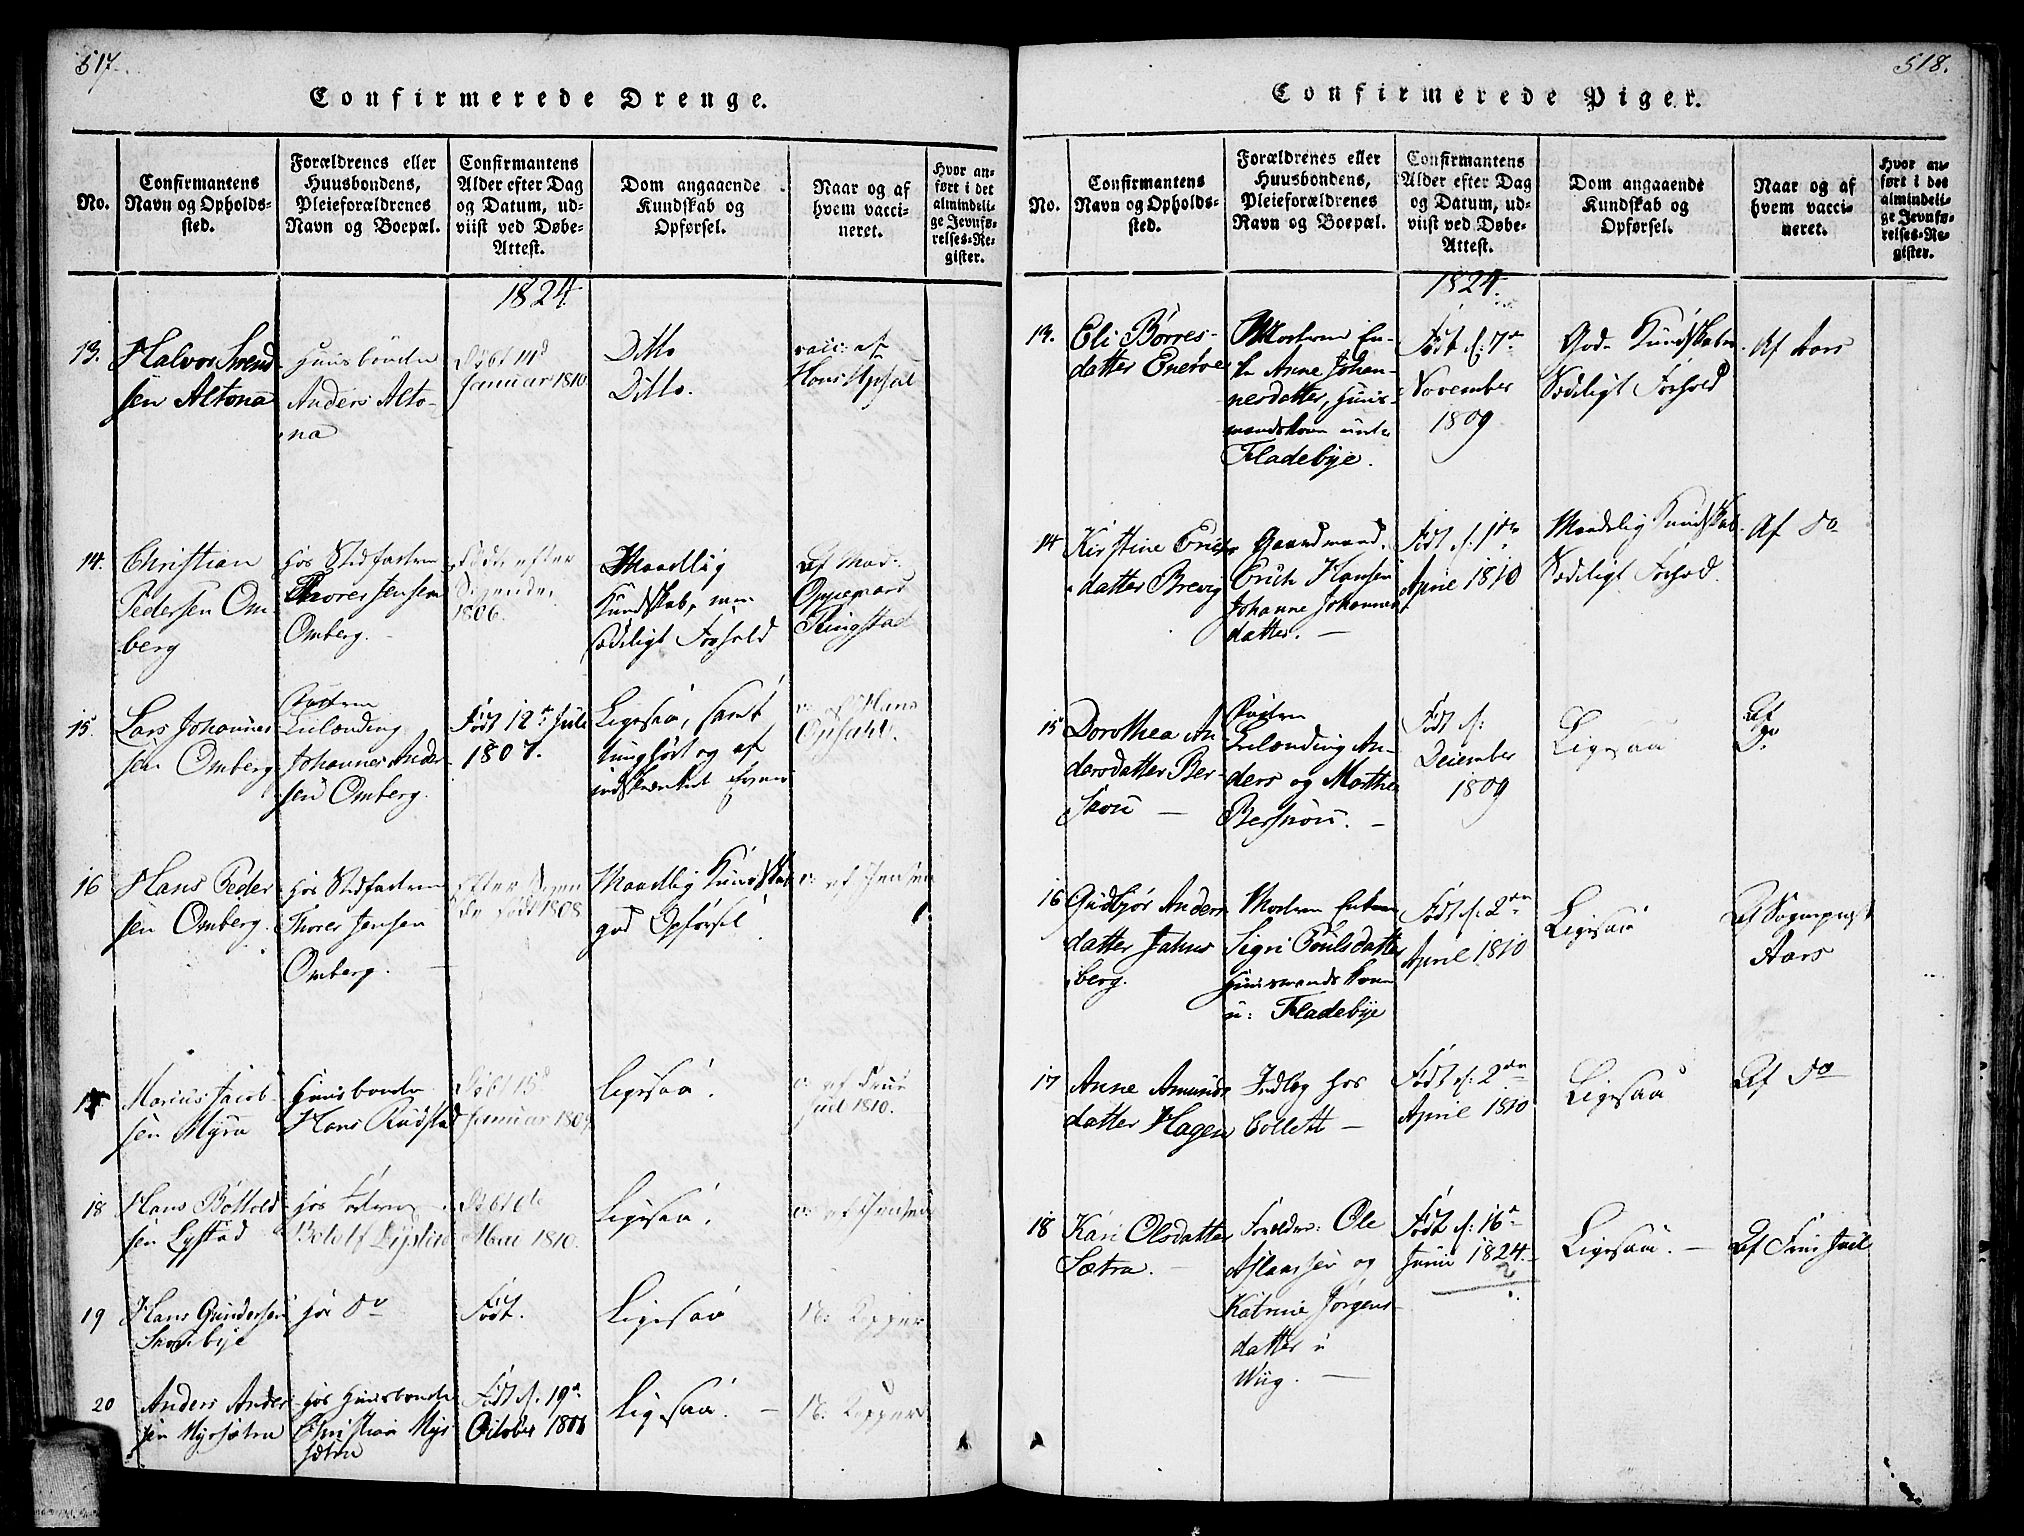 517.
Confirmerede Drenge.
No.
Confirmantens
Navn og Opholds-
sted.
Forældrenes eller
Huusbondens,
Pleieforældrenes
Navn og Boepæl.
Confirmantens
Alder efter Dag
og Datum, ud-
viist ved Døbe-
Attest.
Dom angaaende
Kundskab og
Opførsel.
Naar og af
hvem vacci-
neret.
Hvor an-
ført i det
almindeli-
ge Jevnfø-
relses-Re-
gister.
1824.
13.
Halvor Svend-
sen Altona
Huusbonde
Anders Alto-
na
Døbt 14d
Januar 1810
Ditto
Ditto.
vacc: af
Hans Opsal
14.
Christian
Pedersen Om
berg
hos Stedfadren
Thorer Jensen
Omberg.
Født efter
Sigende
1806.
Maadelig
Kundskab, men
sædeligt Forhold
Af Mad:
Ringstad
15.
Lars Johannes
sen Omberg
Leilænding
Johannes Ander
sen Omberg.
Født 12te Julii
1807.
Ligesaa, samt
tunghørt og af
indskrænket Evner
v: af Hans
Opsahl.
16
Hans Peder
sen Omberg.
hos Stedfadren
Thorer Jensen
Omberg.
Efter Sigen
de født 1808.
Maadelig Kundskab
god Opførsel
v: af Jensen
17
Marius Jacob-
sen Myra
Huusbonde
Hans Rudstad
Døbt 15d
Januar 1809
Ligesaa.
v: af Frue
Juel 1810.
18
Hans Bottold
sen Lystad
hos Faderen
Døbt 6te
Mai 1810.
Ligesaa.
v: af Jensen
19
Hans Gundersen
hos do
Født.
Ligesaa
H: Kopper
20
Anders Ander
sen Myrsætra
hos Huusbonde
Christian Myr
sætra
Født d: 19de
October 1808
Ligesaa.
H: Kopper
518.
Confirmerede Piger.
No.
Confirmantens
Navn og Opholds-
sted.
Forældrenes eller
Huusbondens,
Pleieforældrenes
Navn og Boepæl.
Confirmantens
Alder efter Dag
og Datum, ud-
viist ved Døbe-
Attest.
Dom angaaende
Kundskab og
Opførsel.
Naar og af
hvem vacci-
neret.
Hvor an-
ført i det
almindeli-
ge Jevnfø-
relses-Re-
gister.
1824.
13.
Eli Børres-
datter Enerøe
Moderen En-
ke Anne Johan-
nesdatter, Huus-
mandskone under
Fladebye.
Født d: 7de
November
1809
God Kundskab
Sædeligt Forhold
Af Aars
14
Kirstine Erichs
datter Brevig
Gaardmand
Erich Hansen
Johanne Johannes
datter. —
Født d: 1ste
April 1810
Maadelig Kundskab.
Sædeligt Forhold.
Af do
15
Dorothea An
dersdatter Ber-
skou —
Faderen
Leilænding An-
ders og Marthe
Berskou. —
Født d:
December
1809
Ligesaa
Af
do
16
Gudbjør Anders
datter Jahns
berg.
Moderen Enken
Sigri Poulsdatter
Huusmandskone
u: Fladebye
Født d: 2den
April 1810
Ligesaa
Af Sogneprest
Aars
17
Anne Amunds
datter Hagen
Indlag hos
Collett —
Født d: 2den
April 1810
Ligesaa
Af do
18
Kari Olsdatter
Sætra. —
Forældre: Ole
Aslaksen og
Katrine Jørgens-
datter i
Wiig. —
Født d: 16de
Junii 1824.
Ligesaa. —
Af Frue Juel